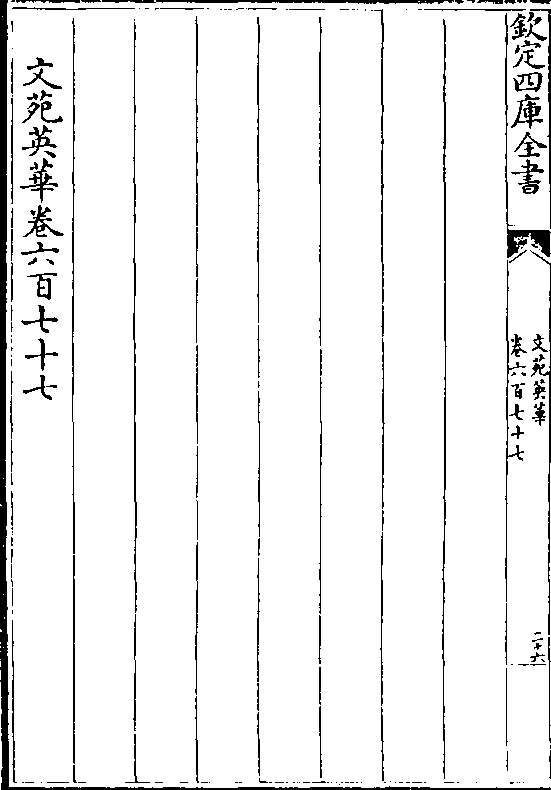 欽定四庫全書
文苑英華
卷六百七十七
二十六
文苑英華卷六百七十七